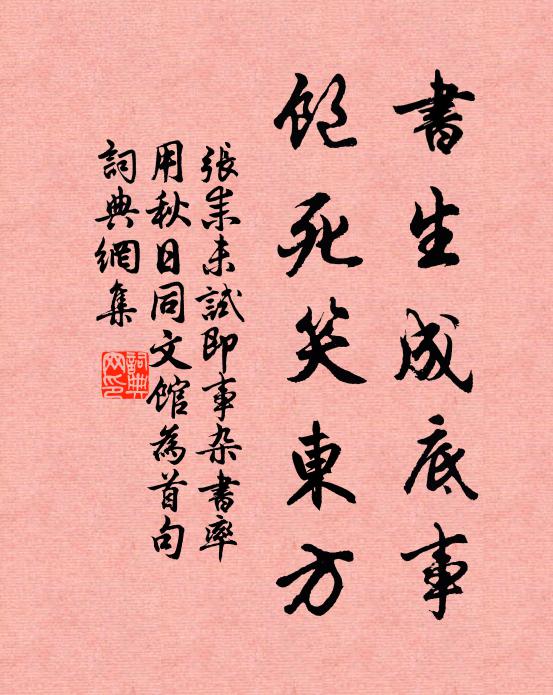 書生成底事
飽死笑東方
張耒未試即事杂書率
用秋日同文館為首句
詞典網集
詞典網印